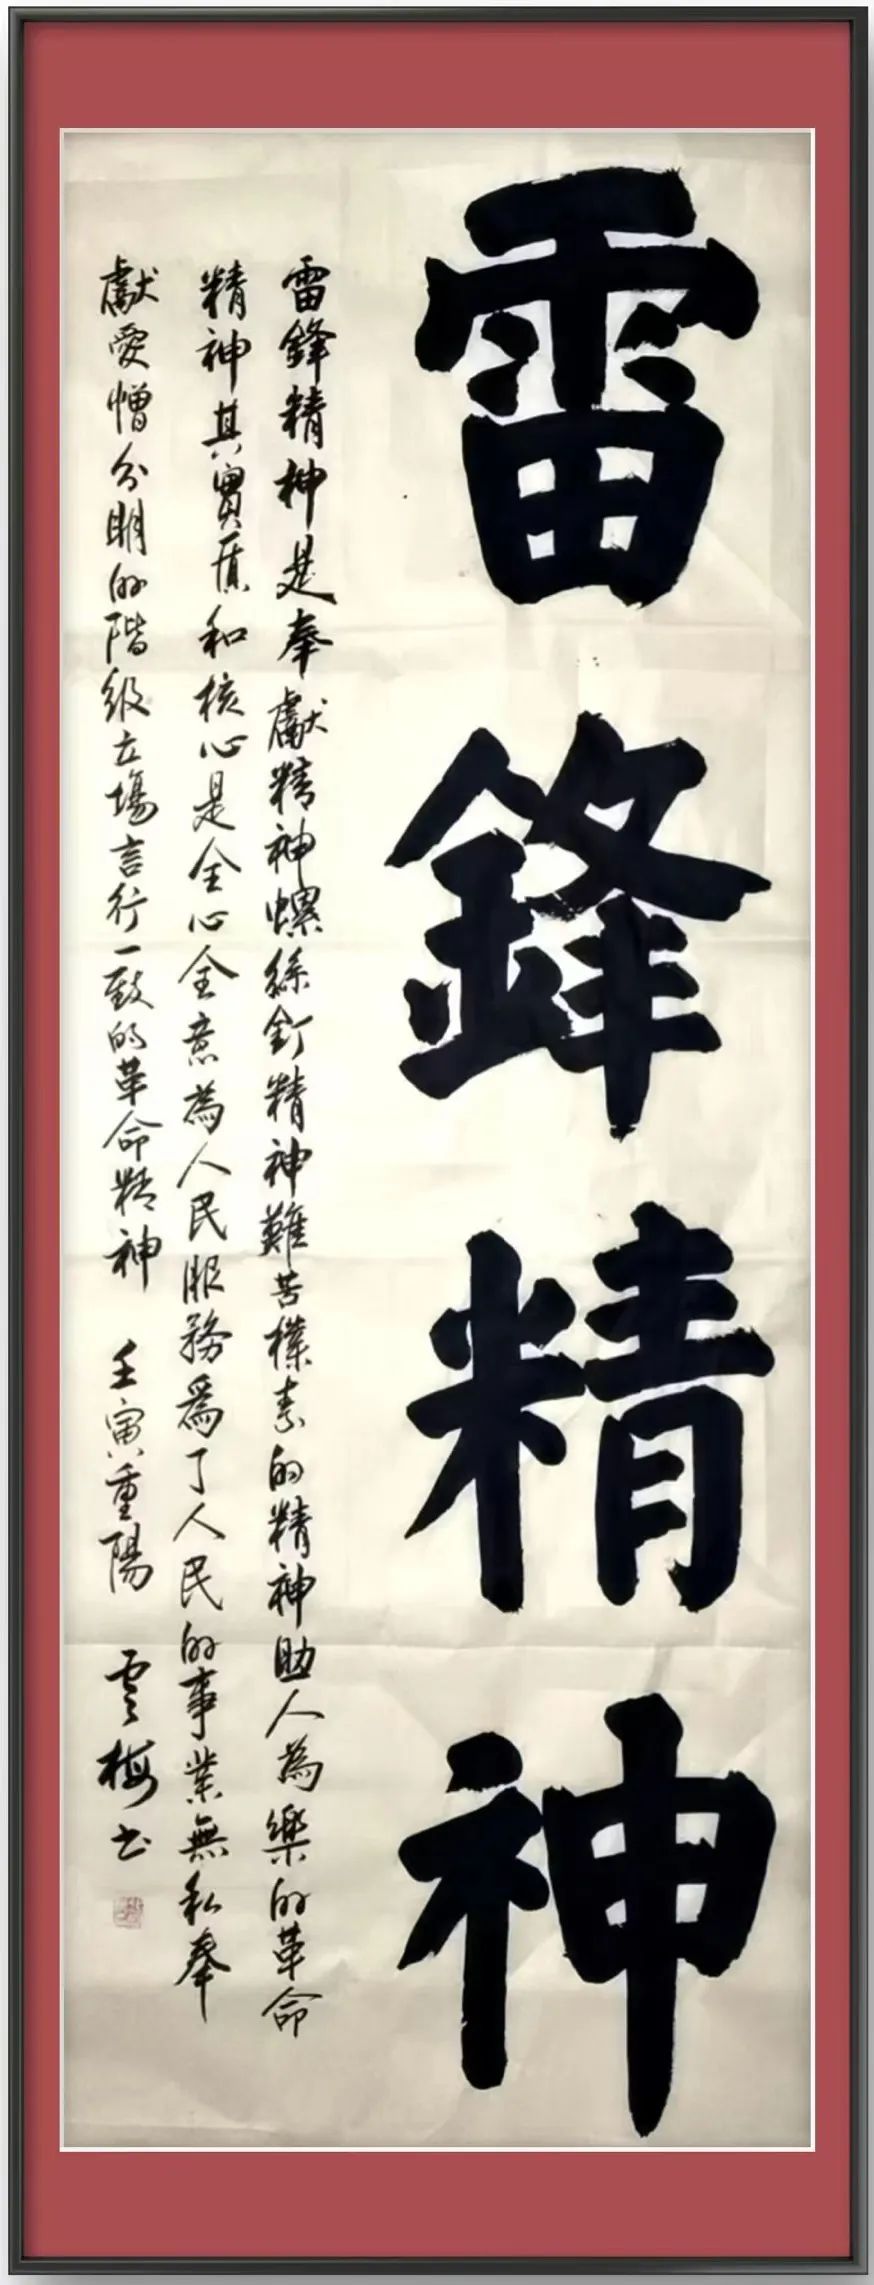 雷鋒精神
雷鋒精神是奉獻精神螺絲釘精神難苦樸素的精神助人為樂的革命
精神其實質和核心是全心全意為人民服務爲了人民的事業無私奉
獻愛憎分明的階級立場言行一致的革命精神　壬寅重陽　雲梅书